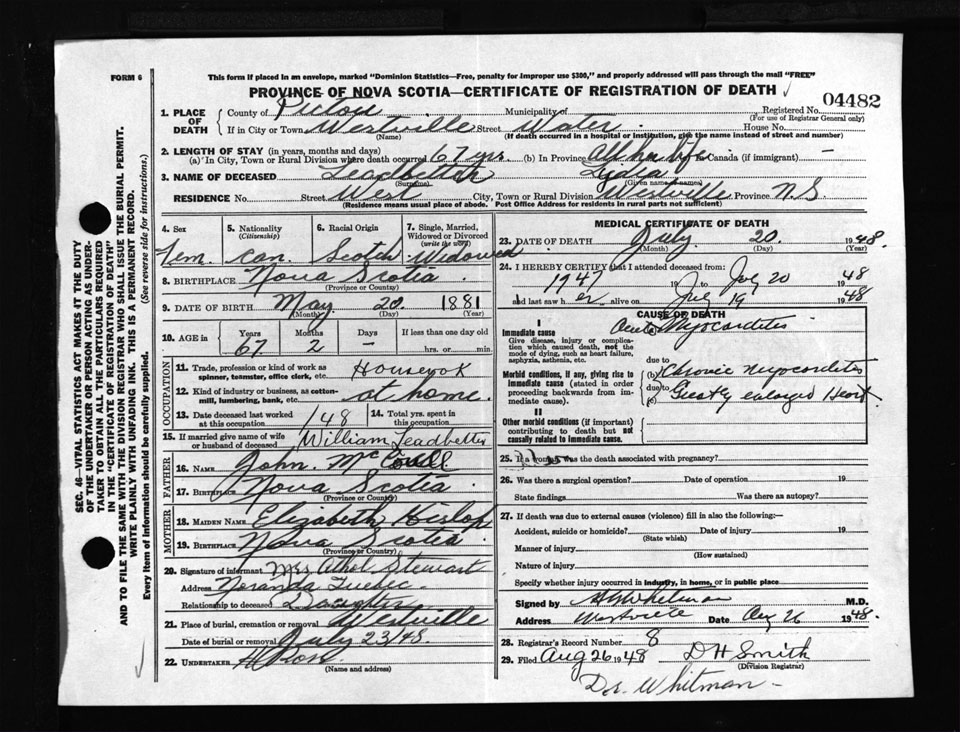 This form if placed in an envelope, marked "Dominion Statistics—Free, penalty for improper use $300," and properly addressed will pass through the mail "FREE"
FORM 6
PROVINCE OF NOVA SCOTIA—CERTIFICATE OF REGISTRATION OF DEATH
04482
1. PLACE OF DEATH County of Pictou Municipality of Registered No. (For use of Registrar General only)
If in City or Town Westville (Name) Street Water House No.
(If death occurred in a hospital or institution, give the name instead of street and number)
2. LENGTH OF STAY (in years, months and days)
(a) In City, Town or Rural Division where death occurred 67 yrs. (b) In Province All her life Canada (if immigrant) —
3. NAME OF DECEASED Leadbetter (Surname) Lydia (Given name or names)
RESIDENCE No. Street West City, Town or Rural Division Westville Province N.S
(Residence means usual place of abode. Post Office Address for residents in rural parts not sufficient)
4. Sex Fem.
5. Nationality (Citizenship) Can.
6. Racial Origin Scotch
7. Single, Married, Widowed or Divorced (write the word) Widowed
8. BIRTHPLACE Nova Scotia (Province or Country)
9. DATE OF BIRTH May (Month) 20 (Day) 1881 (Year)
10. AGE in Years 67 Months 2 Days – If less than one day old hrs. or min.
OCCUPATION
11. Trade, profession or kind of work as spinner, teamster, office clerk, etc. Housewok
12. Kind of industry or business, as cotton-mill, lumbering, bank, etc. at home.
13. Date deceased last worked at this occupation /48
14. Total yrs. spent in this occupation
15. If married give name of wife or husband of deceased William Leadbetter
FATHER
16. NAME John
17. BIRTHPLACE Nova Scotia (Province or Country)
MOTHER
18. MAIDEN NAME Elizabeth Hislop
19. BIRTHPLACE Nova Scotia (Province or Country)
20. Signature of informant Mrs Athol Stewart
Address Noranda Quebec
Relationship to deceased Daughter
21. Place of burial, cremation or removal Westville
Date of burial or removal July 23/48
22. UNDERTAKER H Ross (Name and address)
MEDICAL CERTIFICATE OF DEATH
23. DATE OF DEATH July (Month) 20 (Day) 1948. (Year)
24. I HEREBY CERTIFY that I attended deceased from:
1947 19 to July 20 1948
and last saw her alive on July 19 1948
CAUSE OF DEATH
I
Immediate cause Acute Myocarditis
Give disease, injury or complication which caused death, not the mode of dying, such as heart failure, asphyxia, asthenia, etc.
due to
Morbid conditions, if any, giving rise to immediate cause (stated in order proceeding backwards from immediate cause)
(b) Chronic myocarditis
due to
(c) Greatly enlarged Heart
II
Other morbid conditions (if important) contributing to death but not causally related to immediate cause.
25. If a woman, was the death associated with pregnancy?
26. Was there a surgical operation? Date of operation 19
State findings Was there an autopsy?
27. If death was due to external causes (violence) fill in also the following:—
Accident, suicide or homicide? (State which) Date of injury 19
Manner of injury (How sustained)
Nature of injury
Specify whether injury occurred in industry, in home, or in public place
Signed by Whitman M.D.
Address Westville Date Aug 26 1948.
28. Registrar's Record Number 8
29. Filed Aug 26 1948 D H Smith (Division Registrar)
Dr. Whitman —
SEC. 46—VITAL STATISTICS ACT MAKES IT THE DUTY
OF THE UNDERTAKER OR PERSON ACTING AS UNDER-
TAKER TO OBTAIN ALL THE PARTICULARS REQUIRED
IN THE "CERTIFICATE OF REGISTRATION OF DEATH"
AND TO FILE THE SAME WITH THE DIVISION REGISTRAR WHO SHALL ISSUE THE BURIAL PERMIT.
WRITE PLAINLY WITH UNFADING INK. THIS IS A PERMANENT RECORD.
Every item of Information should be carefully supplied. (See reverse side for instructions.)